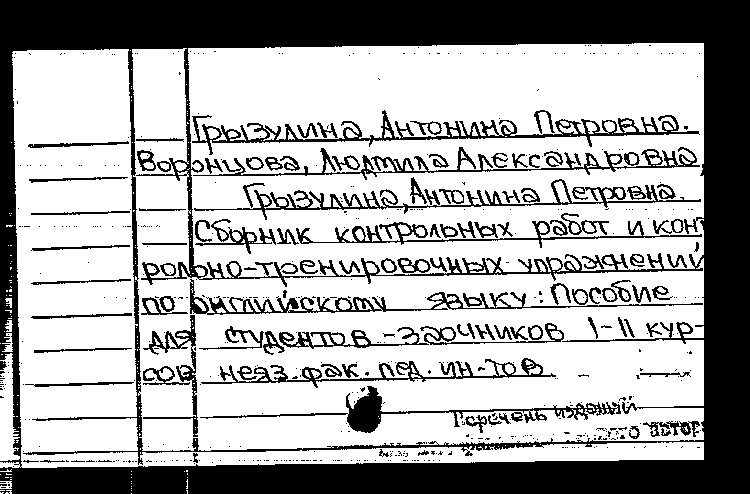 Грызулина, Антонина Петровна.
Воронцова, Людмила Александровна,
Грызулина, Антонина Петровна.
Сборник контрольных работ и конт
рольно-тренировочных упражнений
по английскому языку: Пособие
для студентов-заочников I-II кур-
сов неяз. фак. пед. ин-тов
Перечень изданий
автор